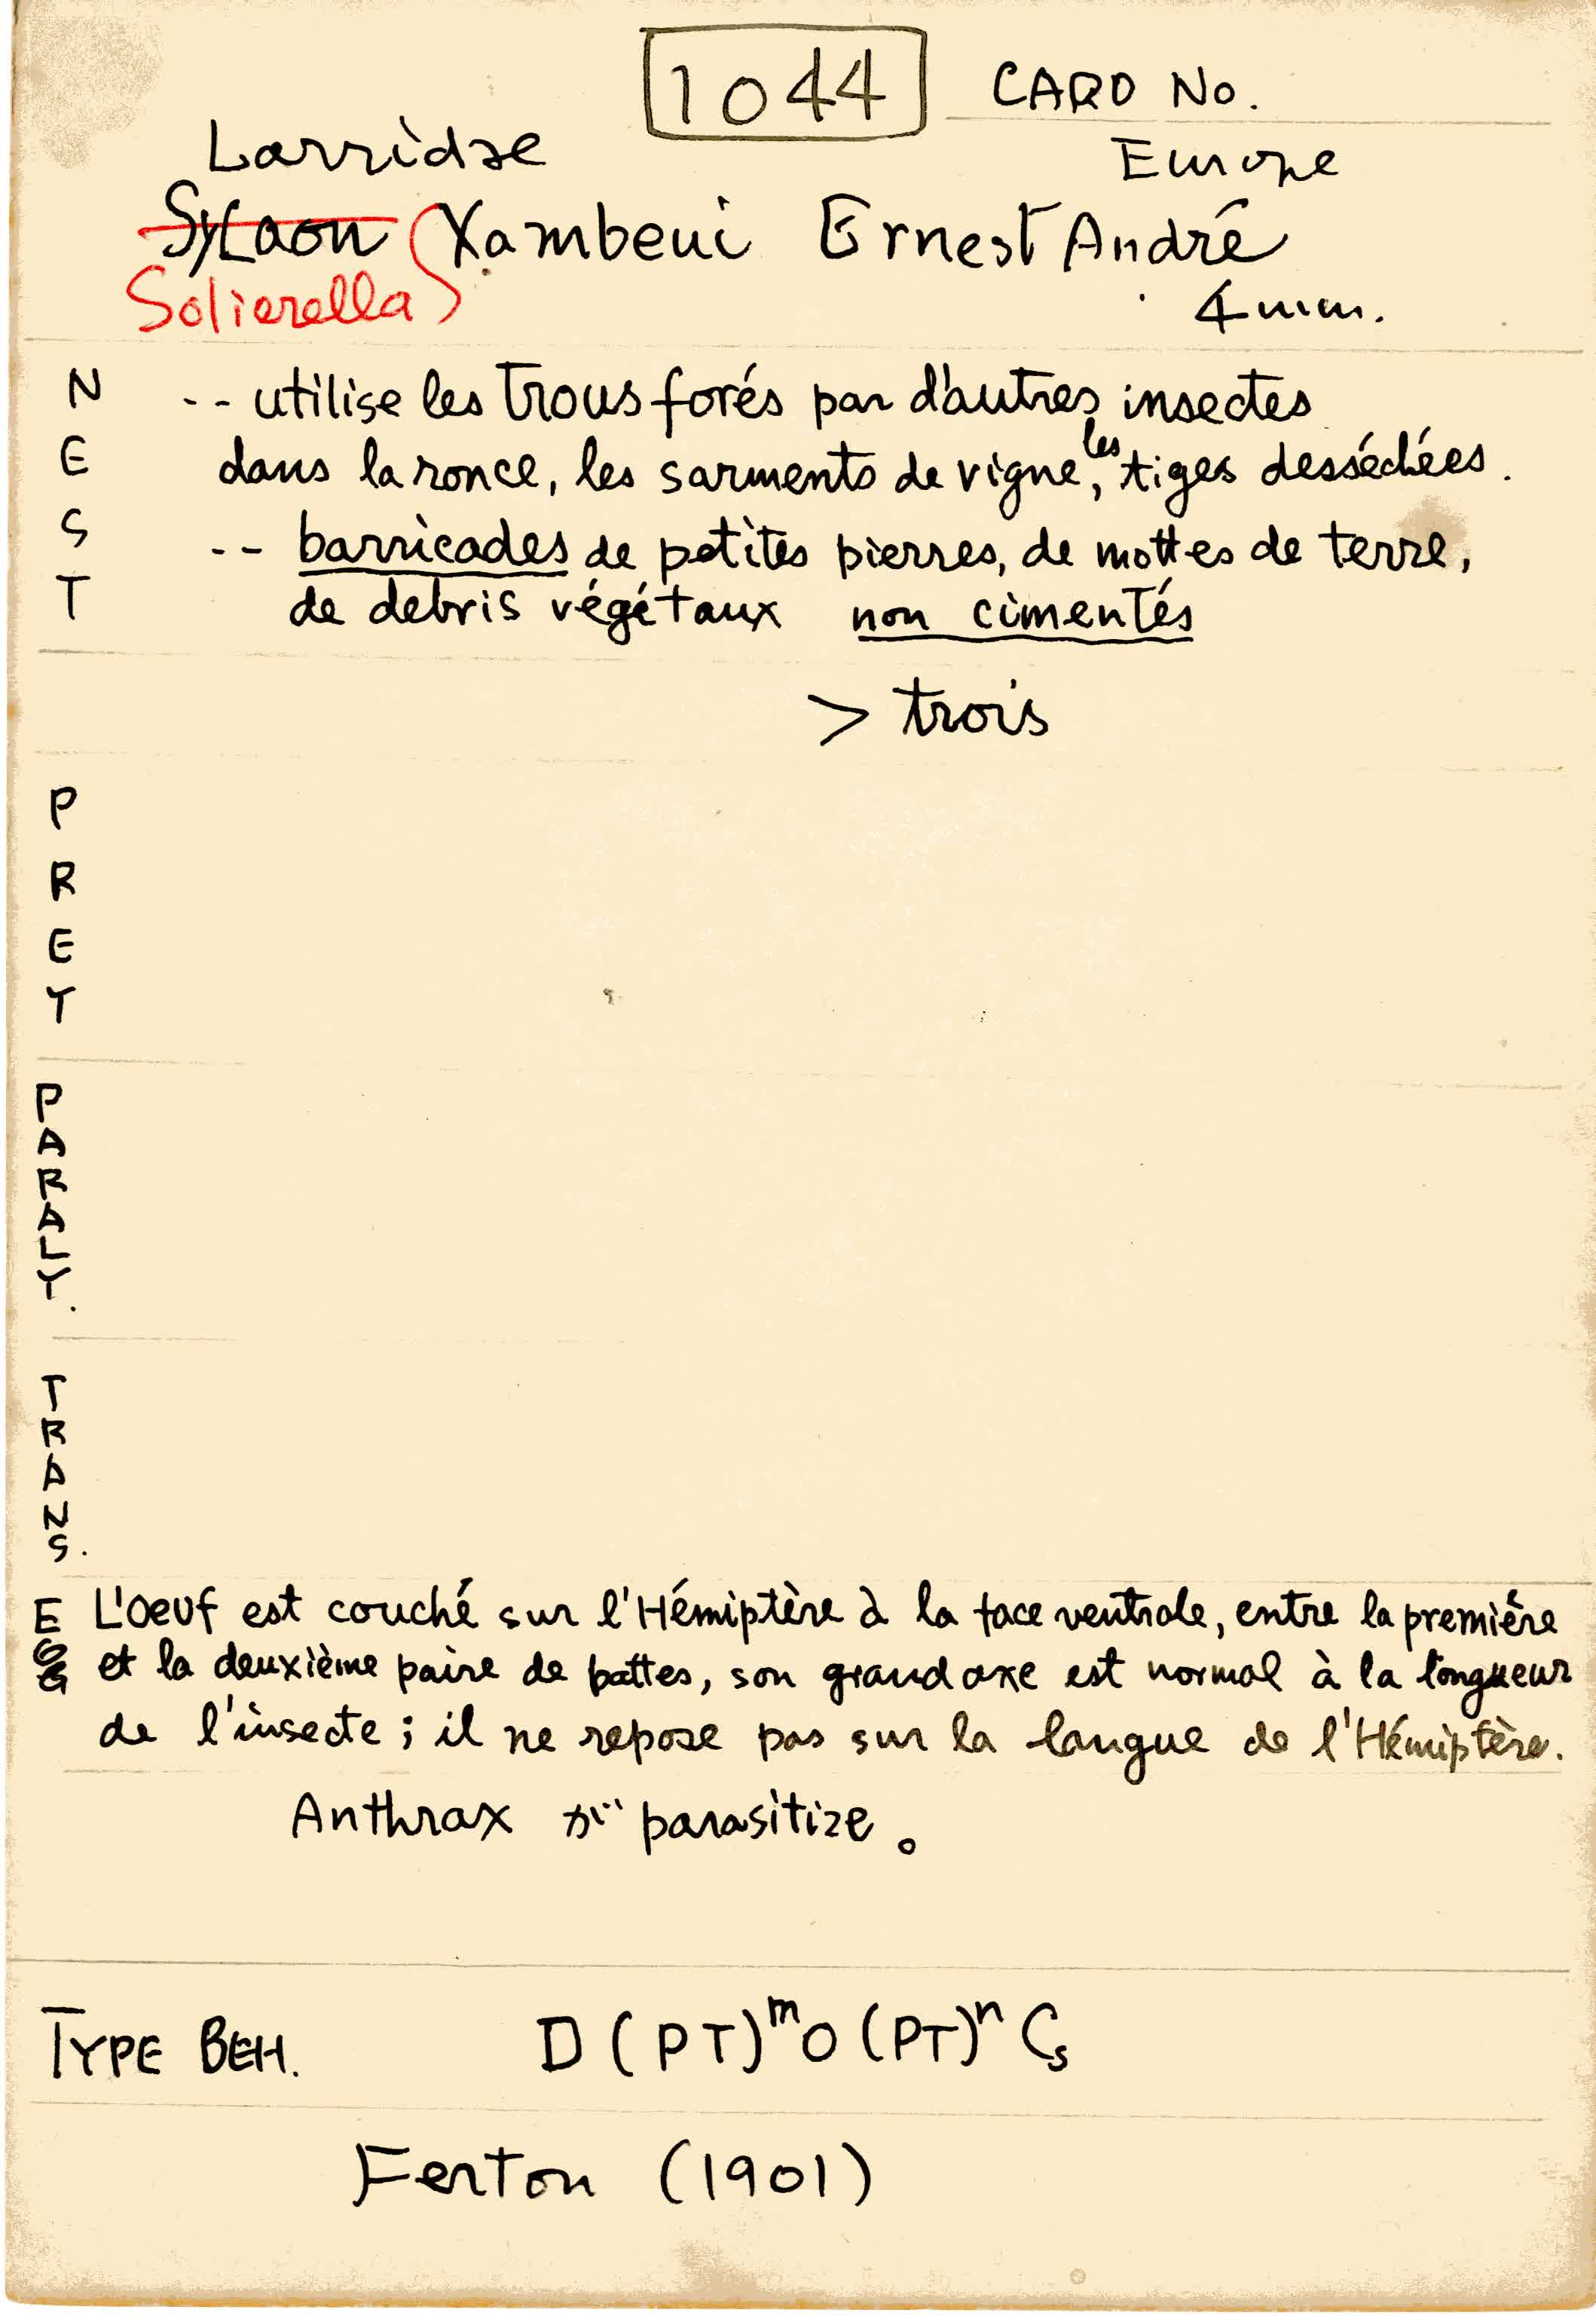 1044 CARD No.
Larridae Europe
Sylaon Xambeui Ernest André
Solierella 4 mm.
NEST -- utilise les trous forés par d'autres insectes
dans la ronce, les sarments de vigne, les tiges desséchées.
-- barricades de petites pierres, de mottes de terre,
de debris végétaux non cimentés
> trois
PREY
PARALY.
TRANS.
EGG L'oeuf est couché sur l'Hémiptère à la face ventrale, entre la première
et la deuxième paire de pattes, son grand axe est normal à la longueur
de l'insecte; il ne repose pas sur la langue de l'Hémiptère.
Anthrax が parasitize。
TYPE BEH. D (PT)^m O (PT)^n Cs
Ferton (1901)